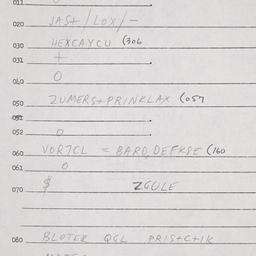 011
020 JAST/LOX/-
030 HEXCAYCU (306
031 +
040 O
050 ZUMERS+PRINKLAX (057
051
052 O
060 VORTCL = BARD, DEFKPE (160
061 O
070 $ ZGULE
080 BLOTER QGL PRIS+C+IK